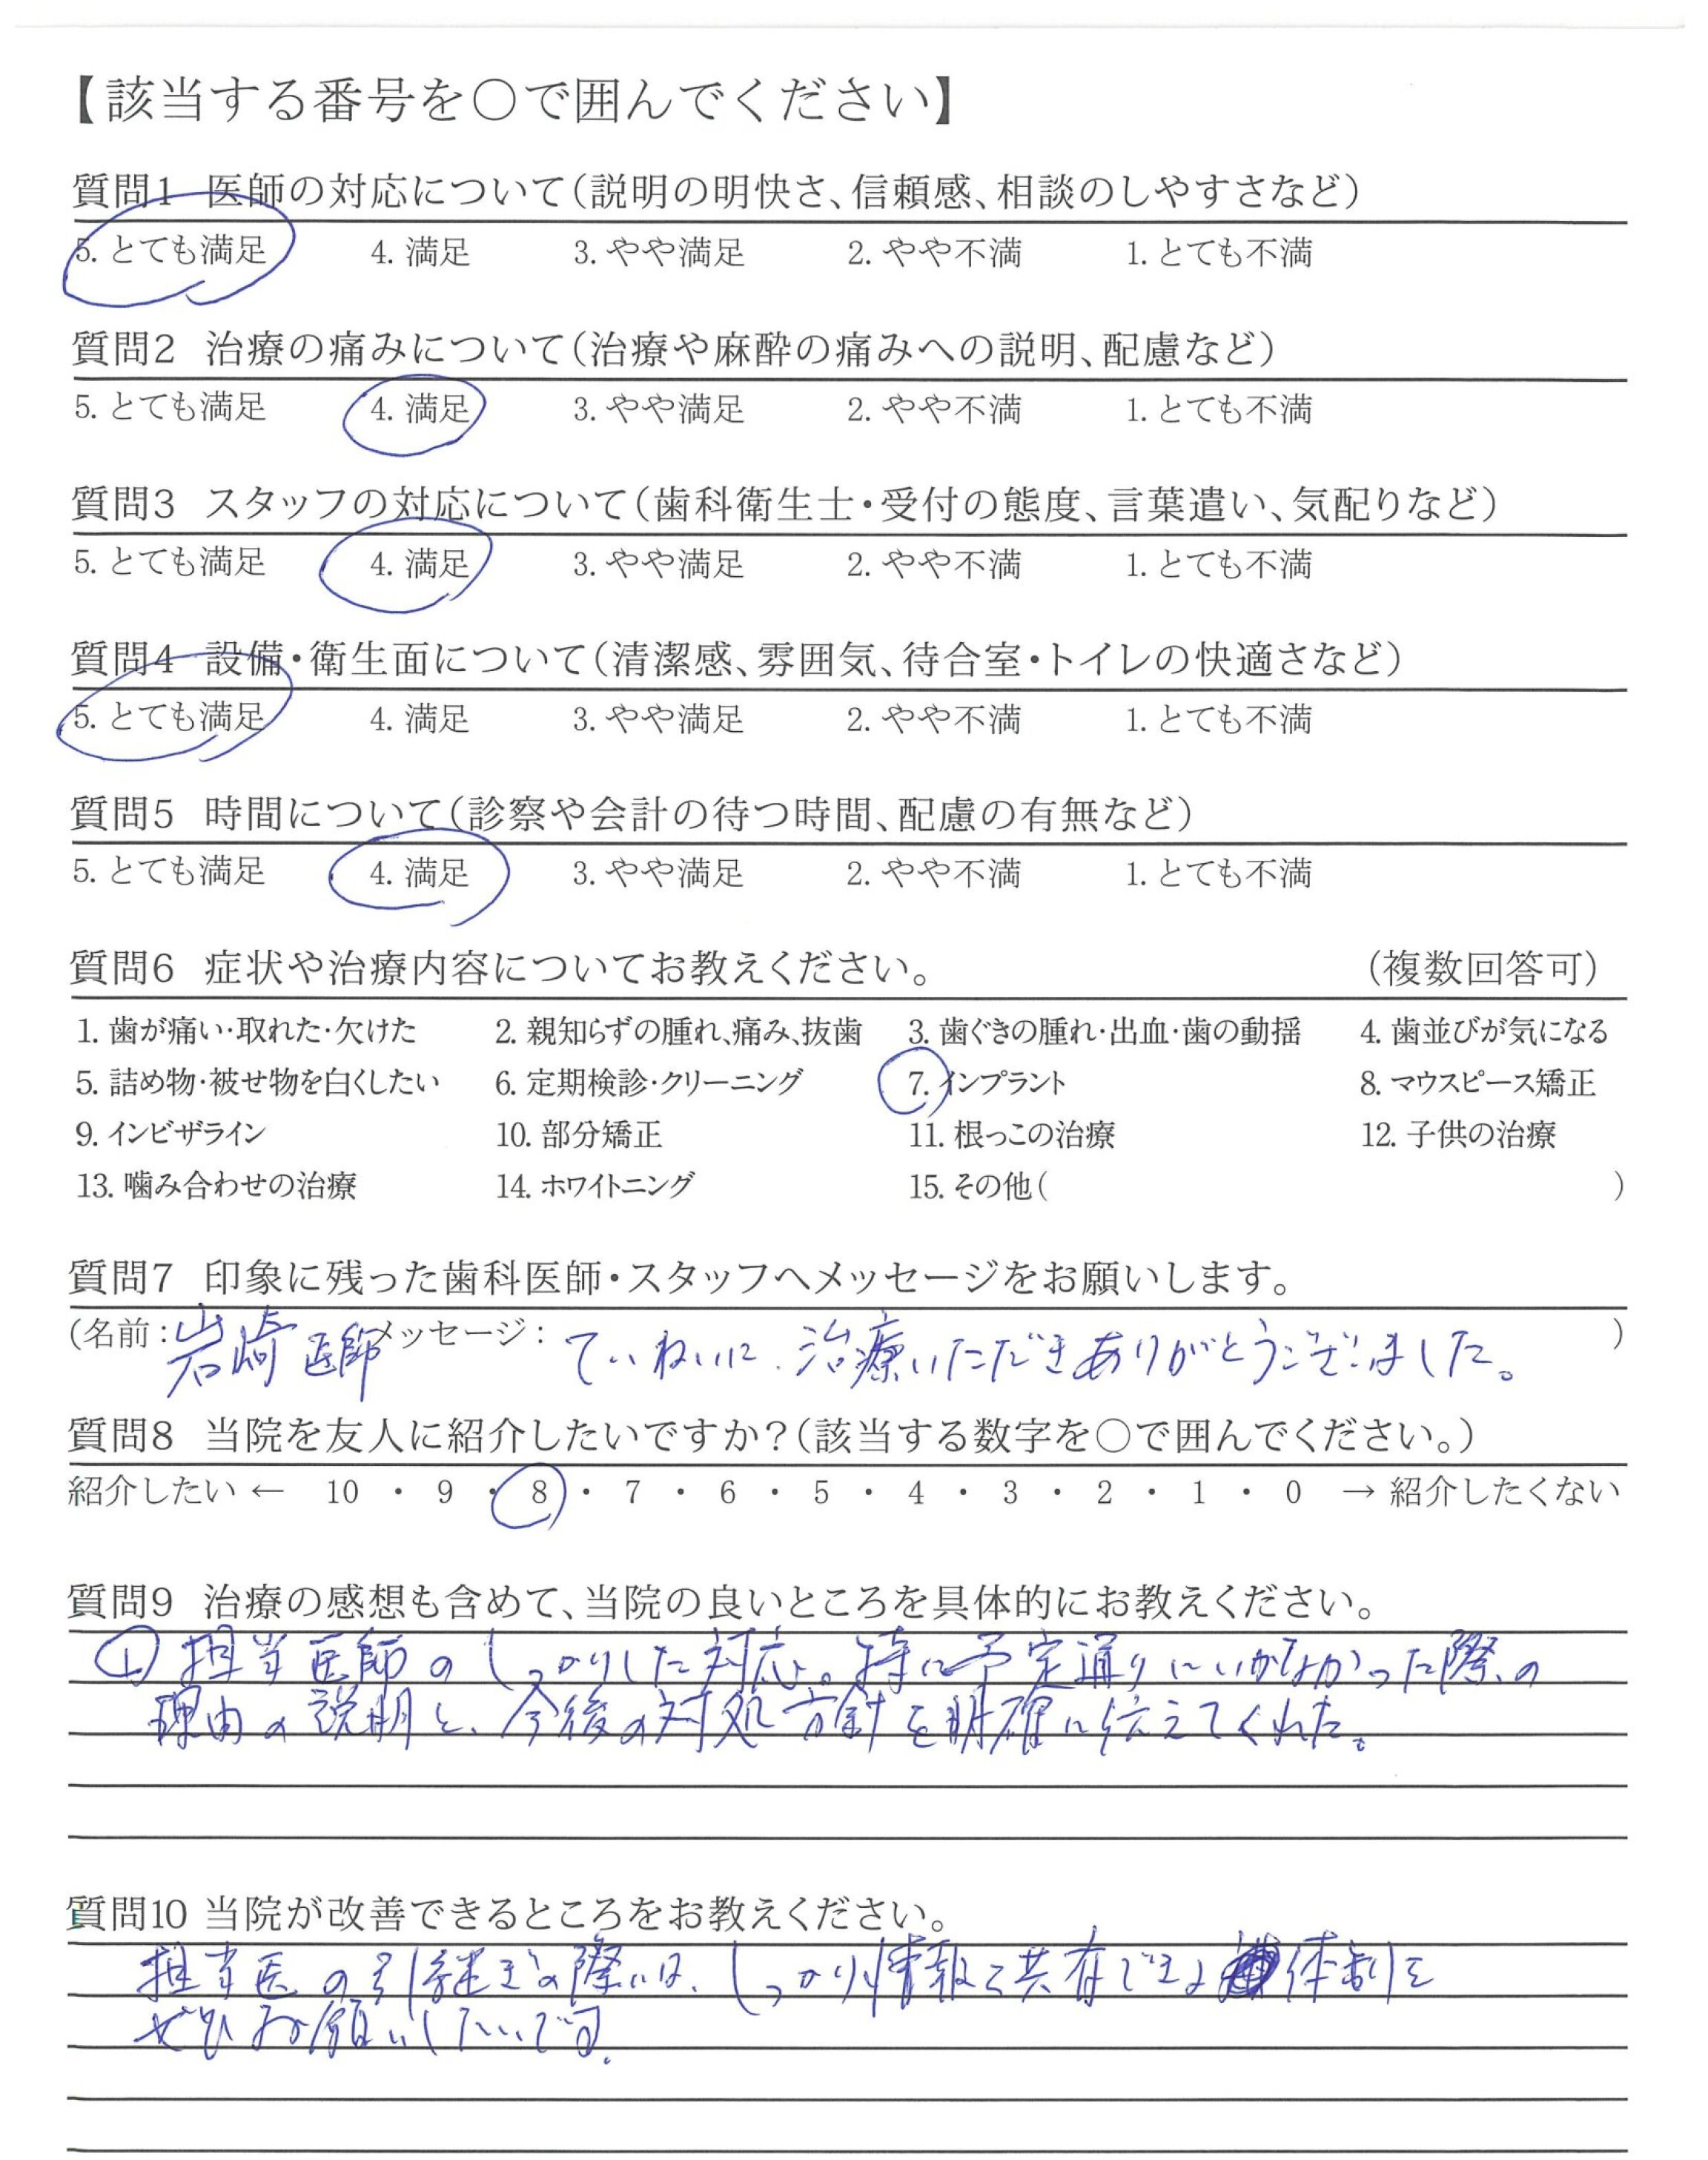 【該当する番号を〇で囲んでください】
質問1 医師の対応について（説明の明快さ、信頼感、相談のしやすさなど）
5. とても満足 4. 満足 3. やや満足 2. やや不満 1. とても不満
質問2 治療の痛みについて（治療や麻酔の痛みへの説明、配慮など）
5. とても満足 4. 満足 3. やや満足 2. やや不満 1. とても不満
質問3 スタッフの対応について（歯科衛生士・受付の態度、言葉遣い、気配りなど）
5. とても満足 4. 満足 3. やや満足 2. やや不満 1. とても不満
質問4 設備・衛生面について（清潔感、雰囲気、待合室・トイレの快適さなど）
5. とても満足 4. 満足 3. やや満足 2. やや不満 1. とても不満
質問5 時間について（診察や会計の待つ時間、配慮の有無など）
5. とても満足 4. 満足 3. やや満足 2. やや不満 1. とても不満
質問6 症状や治療内容についてお教えください。 （複数回答可）
1. 歯が痛い・取れた・欠けた 2. 親知らずの腫れ、痛み、抜歯 3. 歯ぐきの腫れ・出血・歯の動揺 4. 歯並びが気になる
5. 詰め物・被せ物を白くしたい 6. 定期検診・クリーニング 7. インプラント 8. マウスピース矯正
9. インビザライン 10. 部分矯正 11. 根っこの治療 12. 子供の治療
13. 噛み合わせの治療 14. ホワイトニング 15. その他（ ）
質問7 印象に残った歯科医師・スタッフへメッセージをお願いします。
（名前：岩崎医師 メッセージ： ていねいに、治療いただきありがとうございました。 ）
質問8 当院を友人に紹介したいですか？（該当する数字を〇で囲んでください。）
紹介したい ← 10 ・ 9 ・ 8 ・ 7 ・ 6 ・ 5 ・ 4 ・ 3 ・ 2 ・ 1 ・ 0 → 紹介したくない
質問9 治療の感想も含めて、当院の良いところを具体的にお教えください。
① 担当医師のしっかりした対応。特に予定通りにいかなかった際の
理由の説明と、今後の対処方針を明確に伝えてくれた。
質問10 当院が改善できるところをお教えください。
担当医の引継ぎの際には、しっかり情報を共有できる体制を
ぜひお願いしたいです。